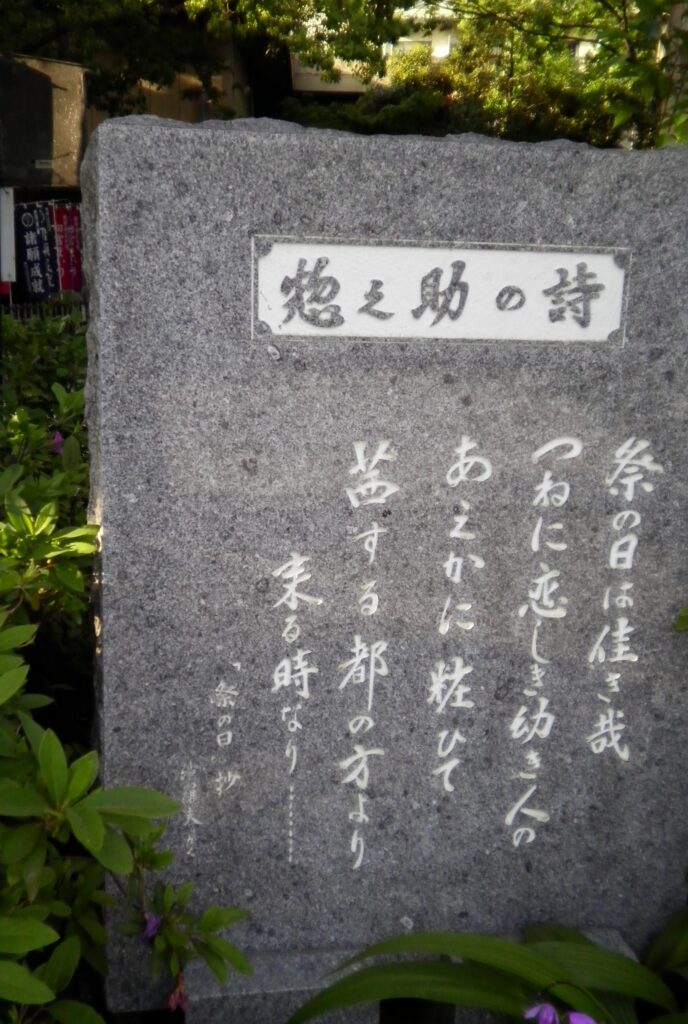 惣之助の詩
祭の日は佳き哉
つねに恋しき幼き人の
あえかに粧ひて
茜する都の方より
来る時なり……
「祭の日」抄
諸願成就